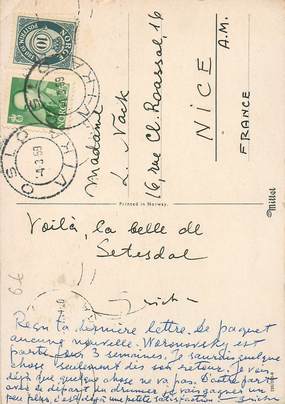 NORGE
10
NORGE
OSLO
Madame
L. Vack
16, rue Cl. Roassal, 16
NICE A.M.
FRANCE
Printed in Norway.
Mittet
Voilà, la belle de
Setesdal
Erich
Reçu ta dernière lettre. De paquet
aucune nouvelle. Woronovsky est
parti pour 3 semaines. Je saurais quelque
chose seulement dès son retour. Je vois
déjà que quelque chose ne va pas. D'autre part
avec le départ du drummer, je vais gagner un
peu plus, c'est déjà une petite satisfaction. Erich